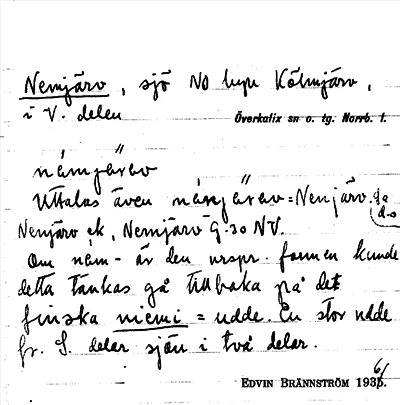 Nemjärv, sjö NO byn Kölmjärv,
i V. delen
Överkalix sn o. tg. Norrb. l.
námjärav
Uttalas även nánjärav = Nenjärv.
Nemjärv ek, Nemjärv 9.30 NV.
Om näm- är den urspr. formen kunde
detta tänkas gå tillbaka på det
finska niemi = udde. En stor udde
fr. S. delar sjön i två delar.
EDVIN BRÄNNSTRÖM 1936.